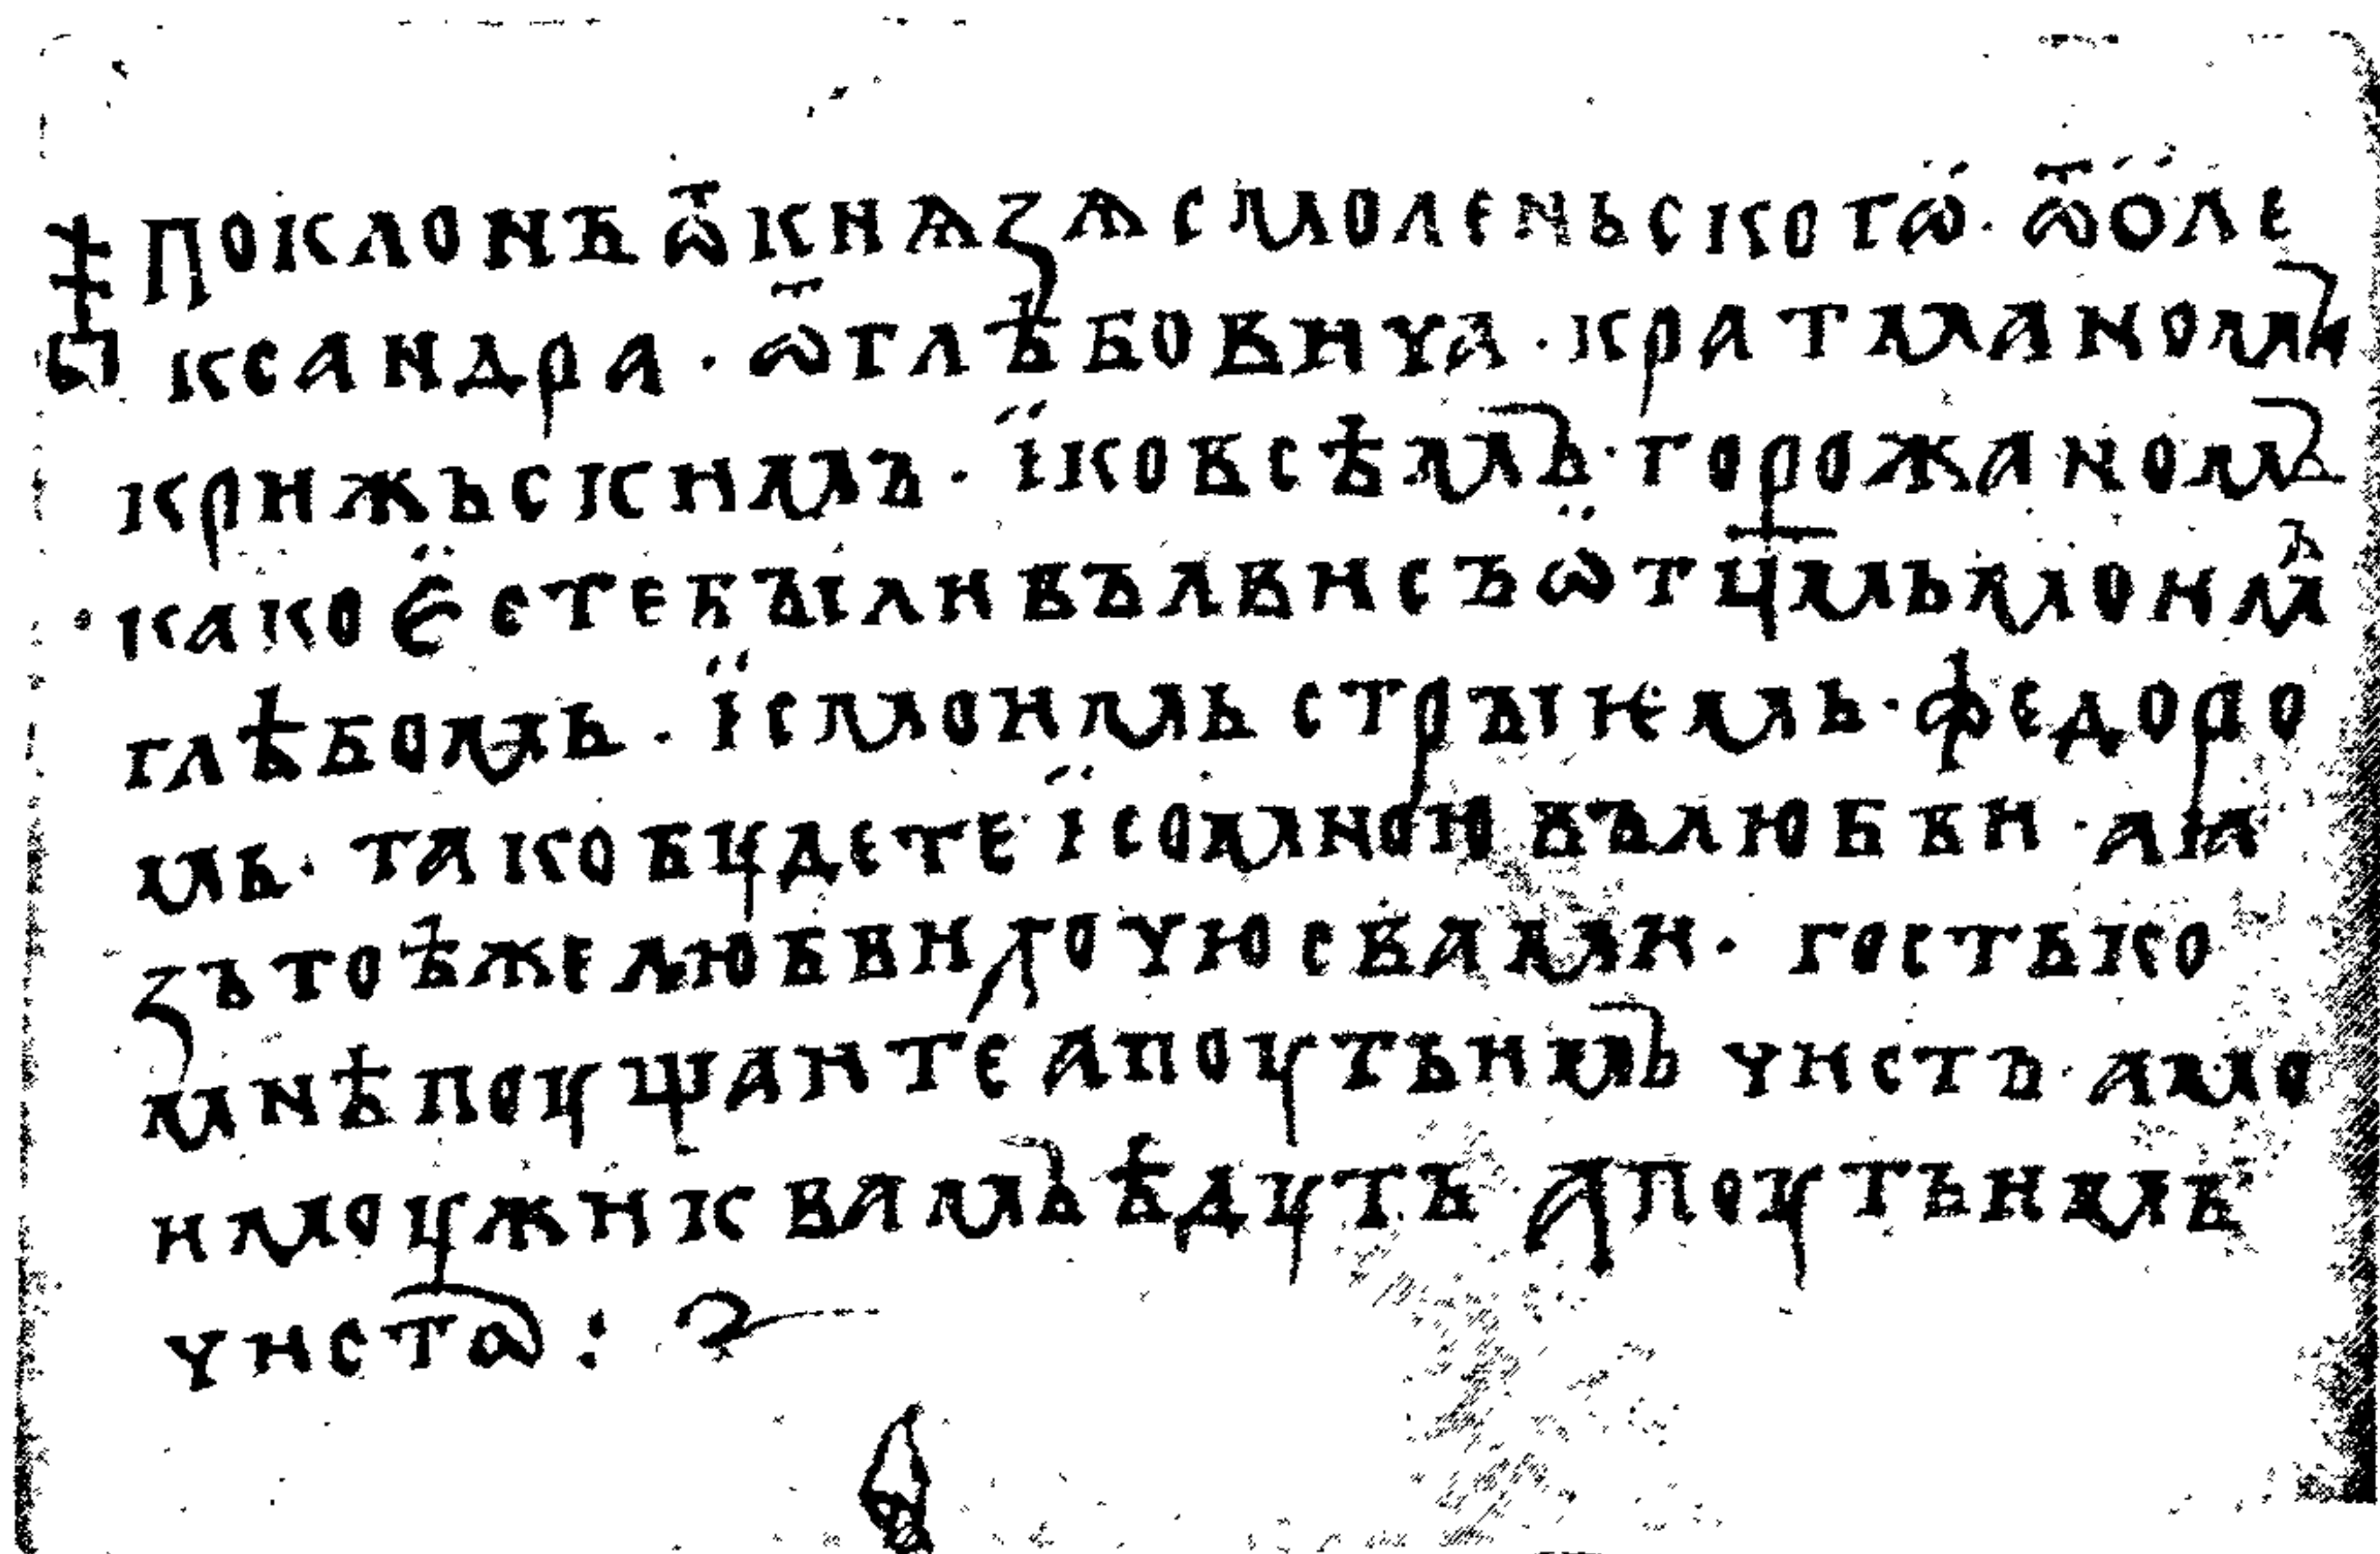 поклонъ ѿ кнѧзѧ смоленьскогѡ · ѿ ѻле
ксандра · ѿ глѣбовича · к ратманомъ
к рижьскимъ · ї ко всѣмъ · горожаномъ
како ѥсте были въ лви съ ѡтцмь моимъ
глѣбомь · ї с моимь стрыѥмь · федоро
мь · тако бꙋдете ї со мною въ любви · а ꙗ
зъ тоѣ же любви хочю с вами · гость ко
мнѣ поущаите а поуть имъ чистъ · а мо
и моужи к вамъ ѣдꙋть · а поуть имь
чистъ :